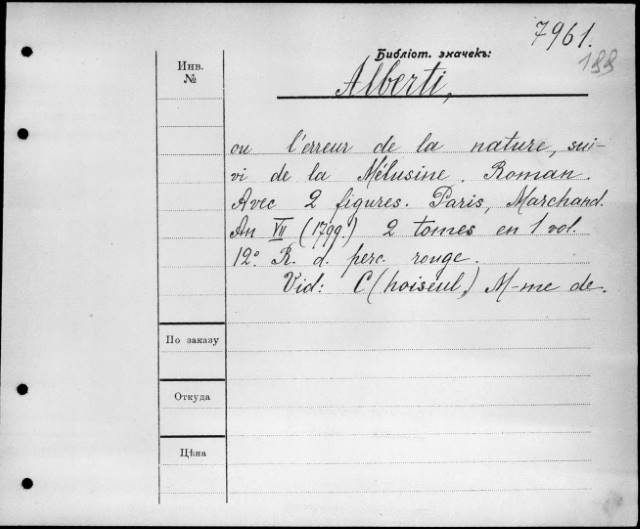 7961.
188
Библіот. значекъ:
Инв.
№
Alberti,
ou l'erreur de la nature, sui-
vi de la Mélusine. Roman.
Avec 2 figures. Paris, Marchand.
An VII (1799.) 2 tomes en 1 vol.
12º R. d. perc. rouge.
Vid: C(hoiseul,) M-me de.
По заказу
Откуда
Цѣна